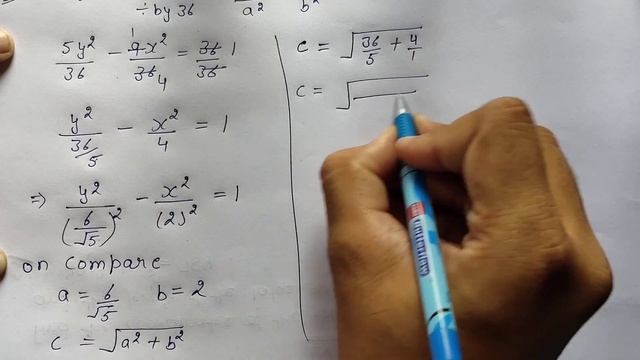 ÷by 36 a² b²
5y²/36 - 9x²/36 4 = 36/36 1
y²/(36/5) - x²/4 = 1
⇒ y²/(6/√5)² - x²/(2)² = 1
on compare
a = 6/√5 b = 2
c = √(a² + b²)
c = √(36/5 + 4/1)
c = √